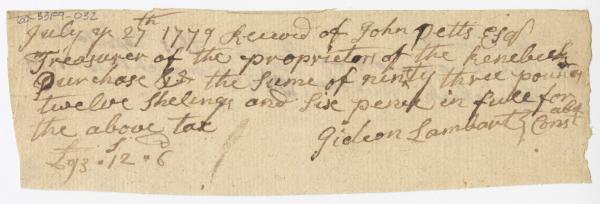 July ye 27th 1779 Receved of John Petts Esqr
Treasurer of the proprietors of the Kenebeck
Purchase &c the Sume of ninty three pounds
twelve Shelings and Six pence in full for
the above tax
Gideon Lambart Const
£93 . 12 . 6